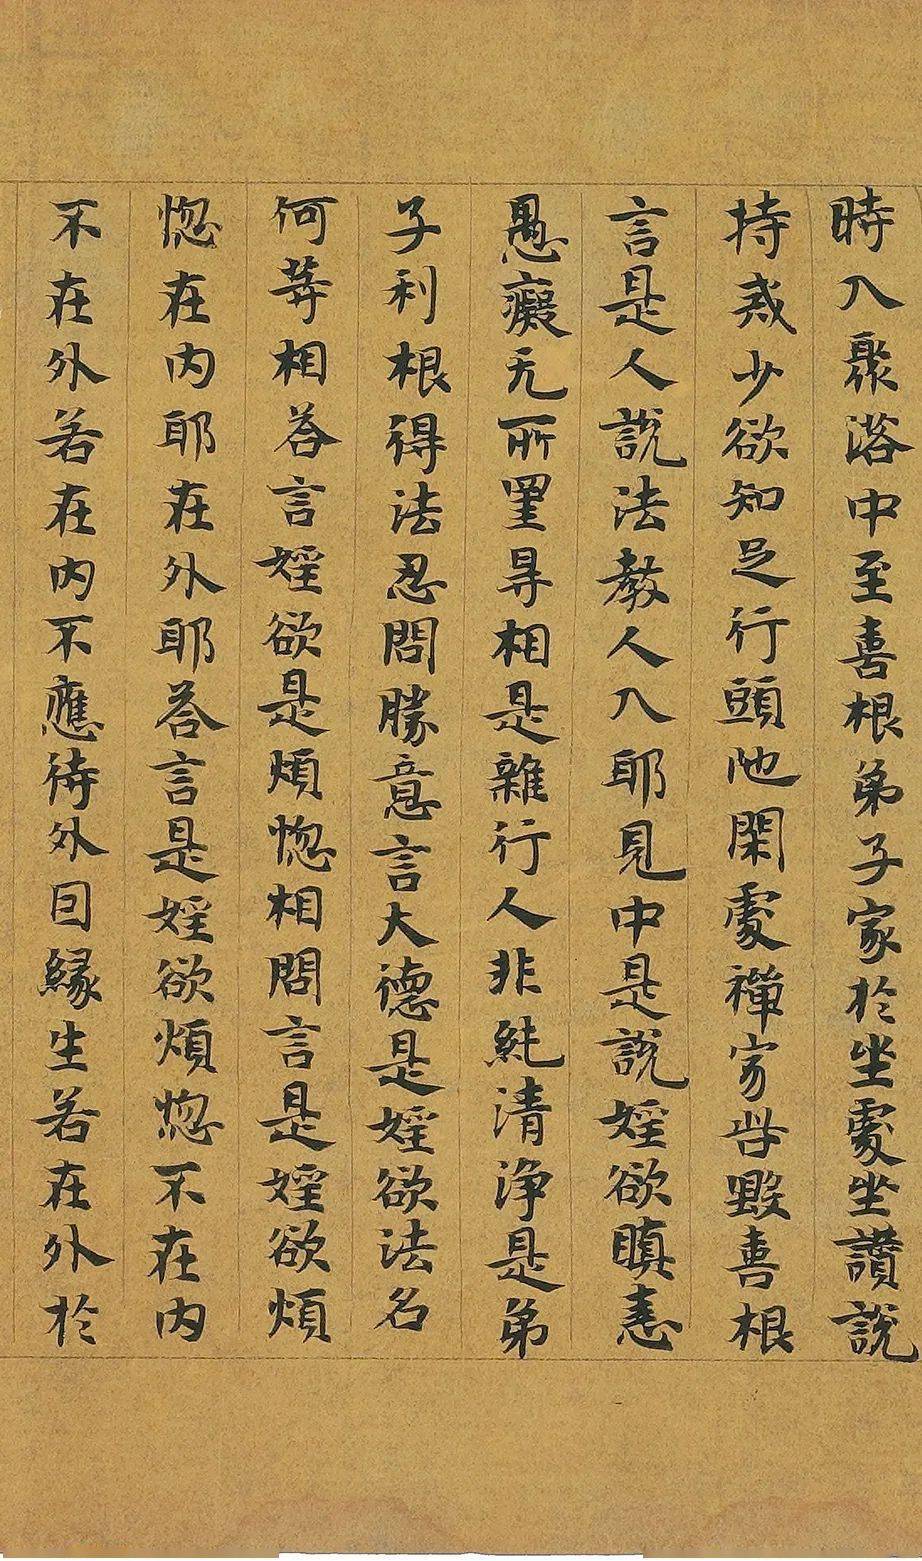 時入聚落中至喜根弟子家於坐處坐讚說
持戒少欲知足行頭陁閑處禪家呰毀喜根
言是人說法教人入耶見中是說婬欲瞋恚
愚癡无所罣导相是雜行人非純清淨是弟
子利根得法忍問勝意言大德是婬欲法名
何等相荅言婬欲是煩惚相問言是婬欲煩
惚在内耶在外耶荅言是婬欲煩惚不在内
不在外若在内不應待外因緣生若在外於